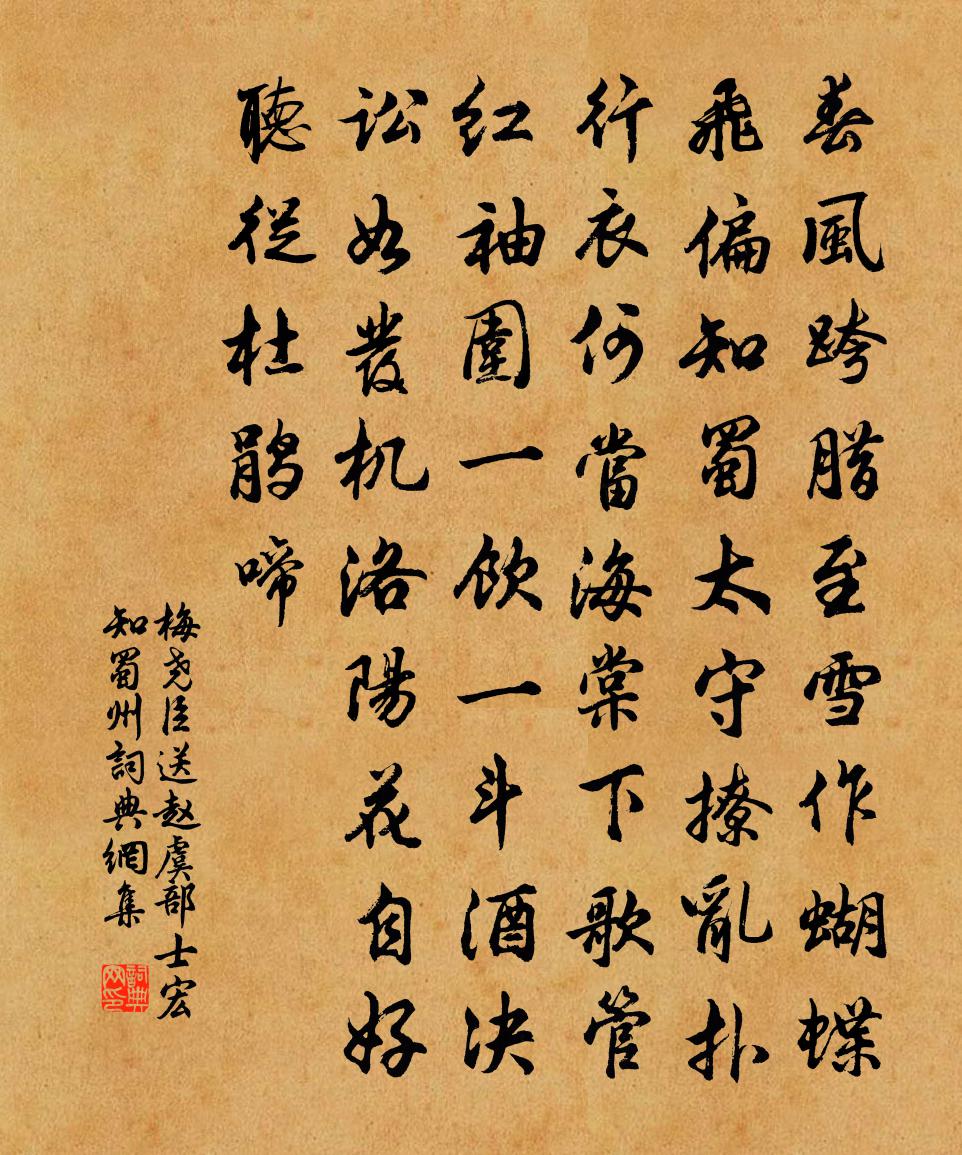 春風跨腊至雪作蝴蝶
飛偏知蜀太守撩亂扑
行衣何當海棠下歌管
红袖圍一飲一斗酒决
訟如發机洛陽花自好
聽從杜鹃啼
梅尧臣送赵虞部士宏
知蜀州詞典網集
詞典网印